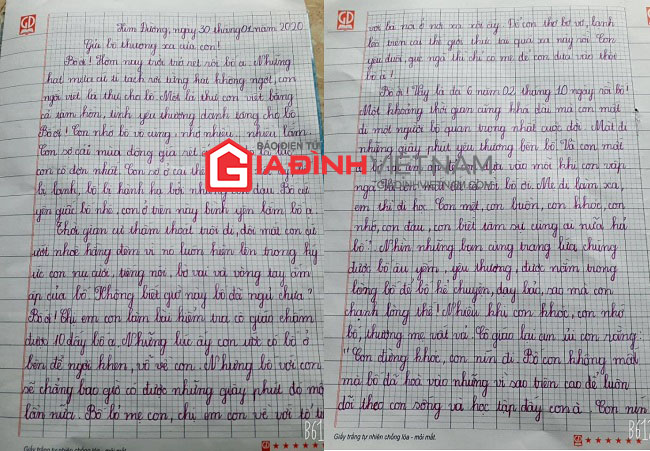 Kim Đường, ngày 30 tháng 01 năm 2020
Gửi bố thương xa của con!
Bố ơi! Hôm nay trời trở rét rồi bố ạ. Những
hạt mưa cứ tí tách rơi từng hạt không ngớt, con
ngồi viết lá thư cho bố. Một lá thư con viết bằng
cả tâm hồn, tình yêu thương dành tặng cho bố.
Bố ơi! Con nhớ bố vô cùng, nhớ nhiều, nhiều lắm.
Con sợ cái mùa đông giá rét
con cô đơn nhất. Con sợ ở cái thế
là lạnh, bố là hành hạ bởi những đau. Bố cứ
yên giấc bố nhé, con ở trên này bình yên lắm bố ạ.
Thời gian cứ thấm thoát trôi đi, đôi mắt con cứ
ướt nhoè hằng đêm vì nó luôn hiện lên trong ký
ức con nụ cười, tiếng nói, bờ vai và vòng tay ấm
áp của bố. Không biết giờ này bố đã ngủ chưa?
Bố ơi! Chị em con làm bài kiểm tra cô giáo chấm
được 10 đấy bố ạ. Những lúc ấy con ước có bố ở
bên để ngợi khen, vỗ về con. Nhưng bố với con
sẽ chẳng bao giờ có được những giây phút đó một
lần nữa. Bố bỏ mẹ con, chị em con về với tổ
Giấy trắng tự nhiên chống lóa - mỏi mắt.
với là nơi ở nơi xa xôi ấy. Để con thơ bơ vơ, lạnh
lẽo trên cái thế giới thực tại quá xa này rồi. Con
yếu đuối, gục ngã thì chỉ có mẹ để con dựa vào thôi
bố ạ!
Bố ơi! Vậy là đã 6 năm 02 tháng 10 ngày rồi bố!
Một khoảng thời gian cũng khá dài mà con mất
đi một người bố quan trọng nhất cuộc đời. Mất đi
những giây phút yêu thương bên bố. Và con mất
đi bờ vai ấm áp để con tựa vào mỗi khi con vấp
ngã. Và bố ơi. Mẹ đi làm xa,
em thì đi học. Con mệt, con buồn, con khóc, con
nhớ, con đau, con biết tâm sự cùng ai nữa hả
bố? Nhìn những bạn cùng trang lứa chúng
được bố âu yếm, yêu thương, được nằm trong
lòng bố để bố kể chuyện, dạy bảo, sao mà con
chạnh lòng thế! Nhiều khi con khóc, con nhớ
bố, thương mẹ vất vả. Cô giáo lại an ủi con rằng:
"Con đừng khóc, con nín đi. Bố con không mất
mà bố đã hoá vào những vì sao trên cao để luôn
dõi theo con sống và học tập đấy con à. Con nín
Giấy trắng tự nhiên chống lóa - mỏi mắt.
BÁO ĐIỆN TỬ
GIAĐÌNHVIETNAM
B61